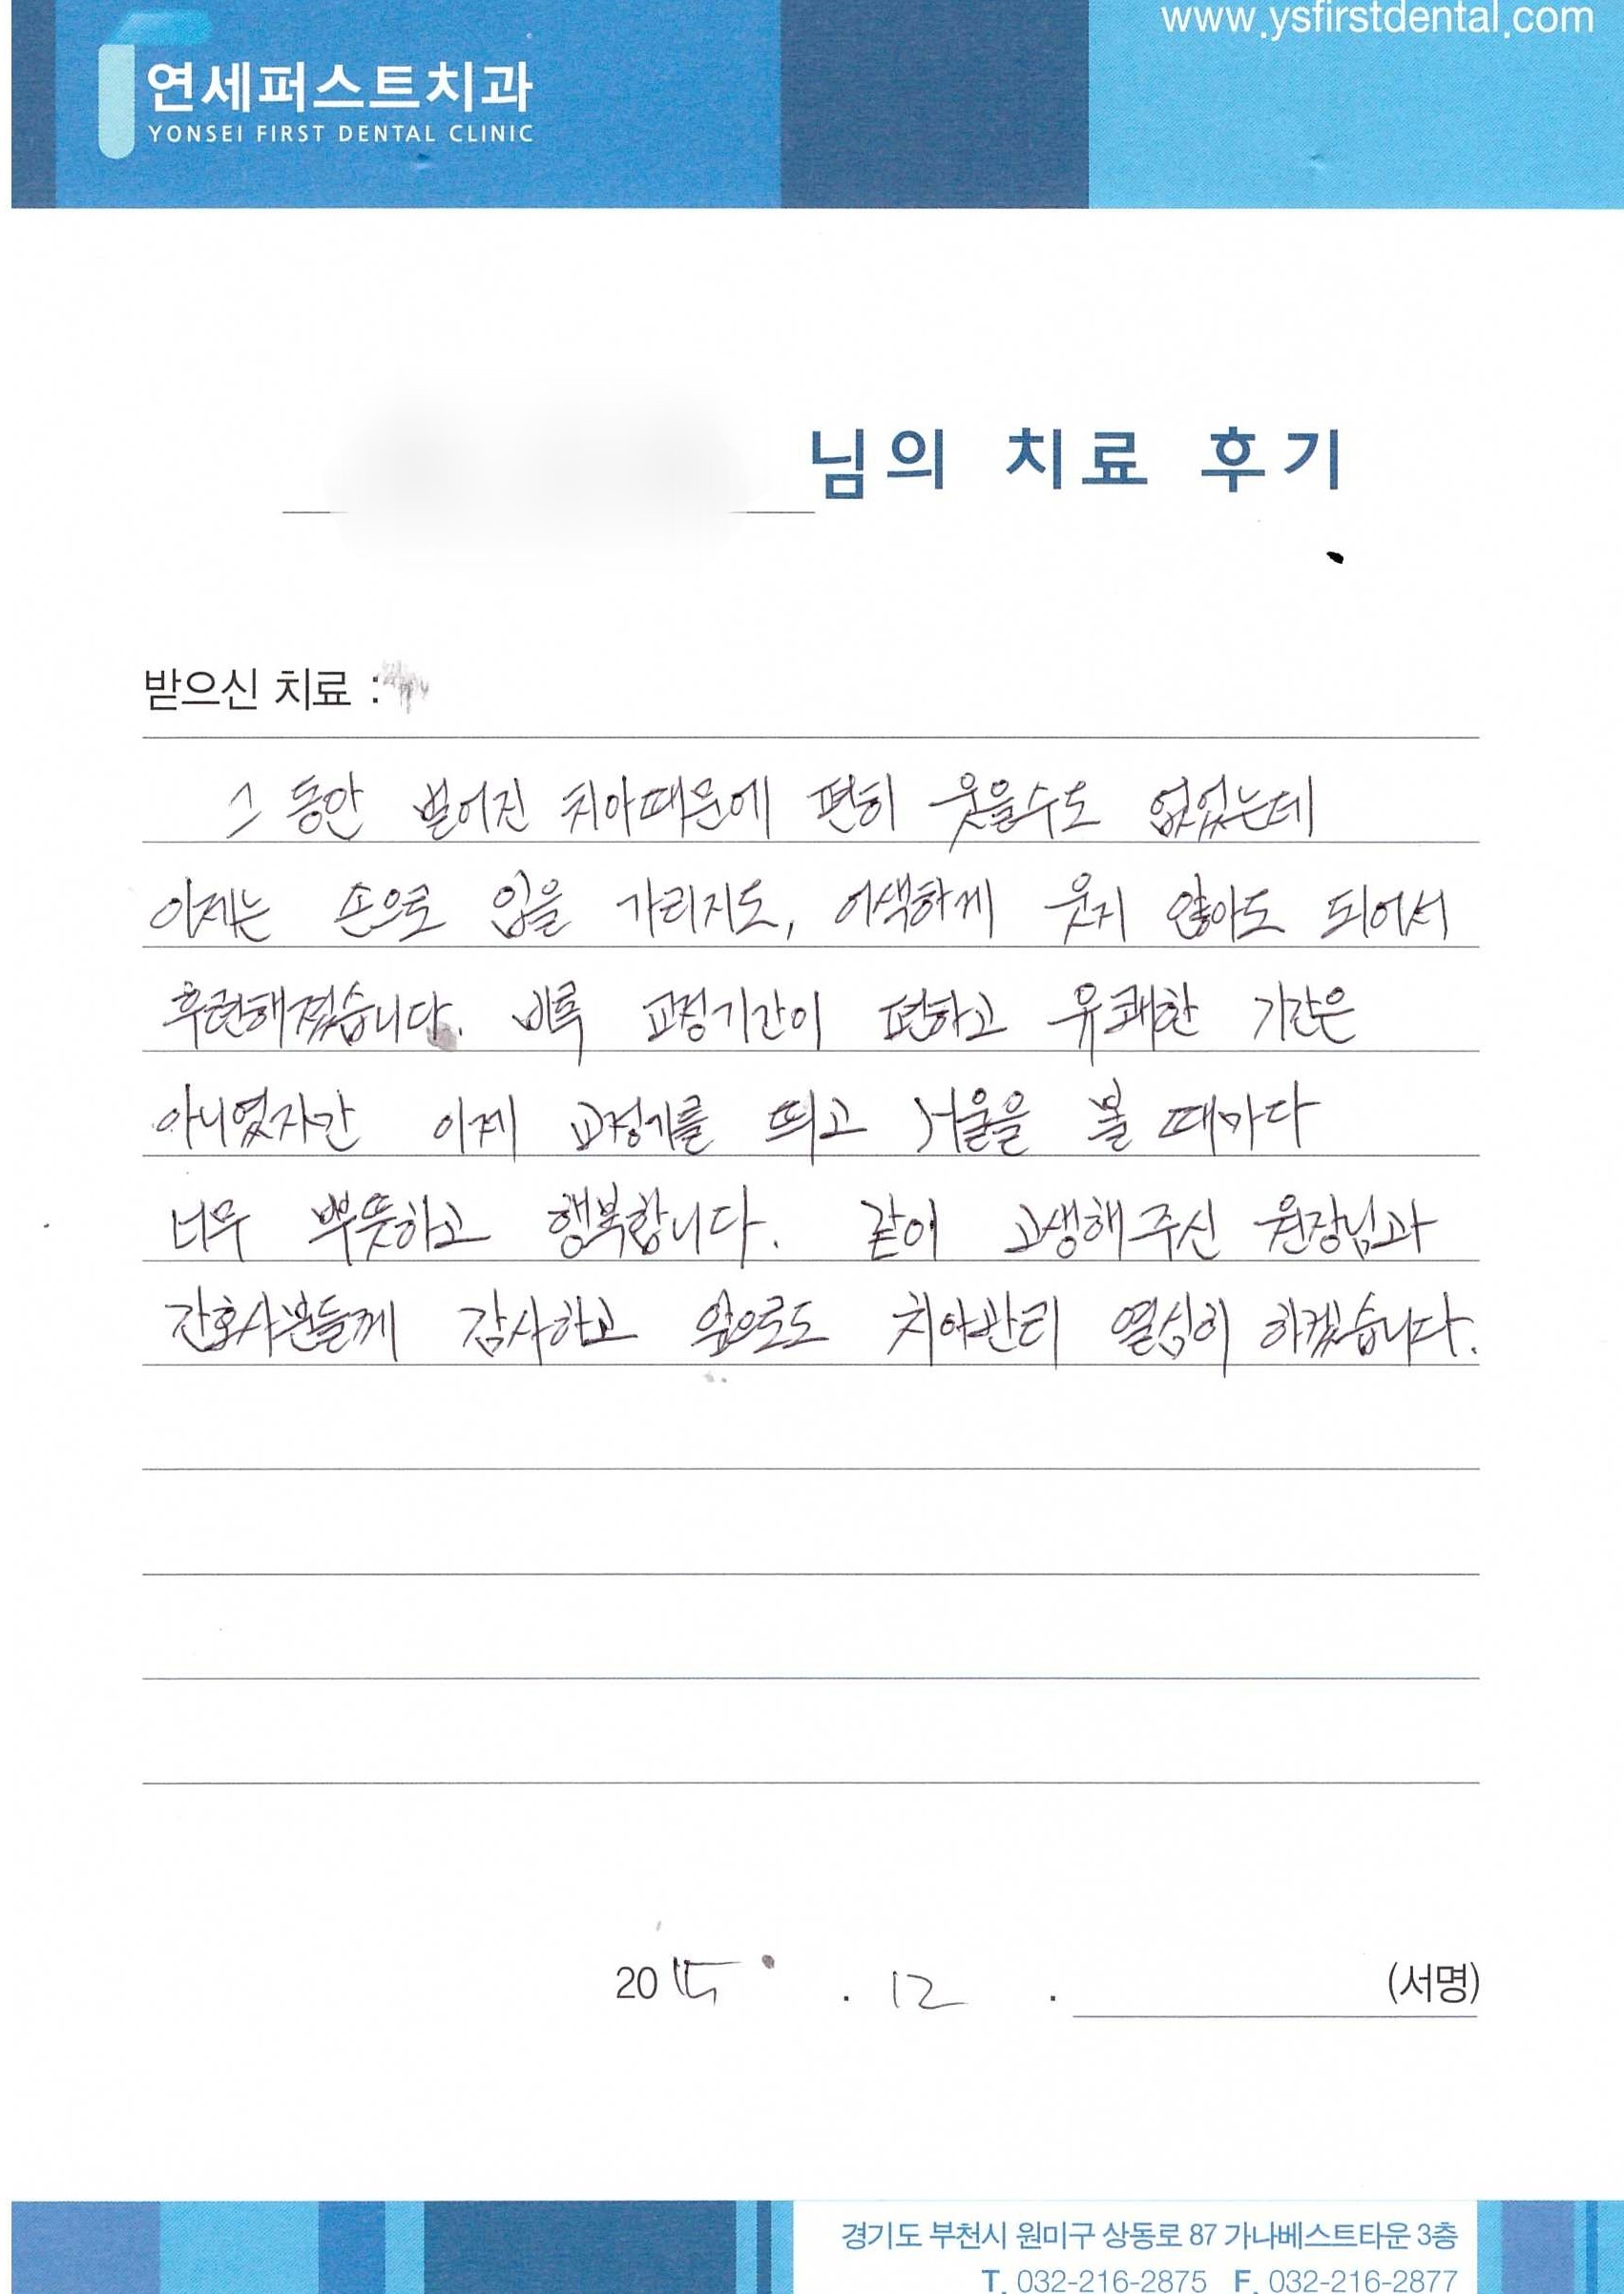 www.ysfirstdental.com
연세퍼스트치과
YONSEI FIRST DENTAL CLINIC
님의 치료 후기
받으신 치료 :
그 동안 벌어진 치아때문에 편히 웃을수도 없었는데
이제는 손으로 입을 가리지도, 어색하게 웃지 않아도 되어서
후련해졌습니다. 비록 교정기간이 편하고 유쾌한 기간은
아니였지만 이제 교정기를 띄고 거울을 볼 때마다
너무 뿌듯하고 행복합니다. 같이 고생해주신 원장님과
간호사분들께 감사하고 앞으로도 치아관리 열심히 하겠습니다.
2015 . 12 . (서명)
경기도 부천시 원미구 상동로 87 가나베스트타운 3층
T. 032-216-2875 F. 032-216-2877